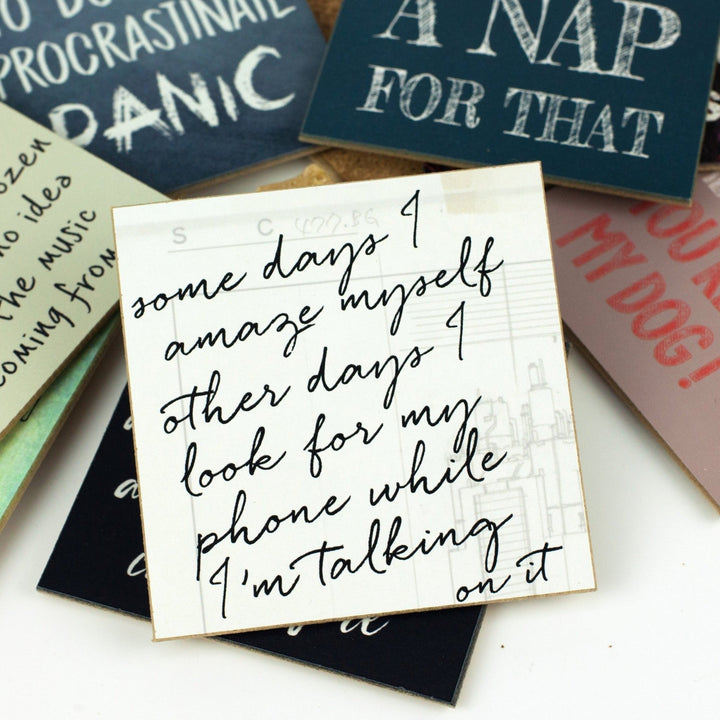 TO DO
PROCRASTINATE
PANIC
A NAP
FOR THAT
no idea
the music
coming from
MY DOG!
S C
some days I
amaze myself
other days I
look for my
phone while
I'm talking
on it